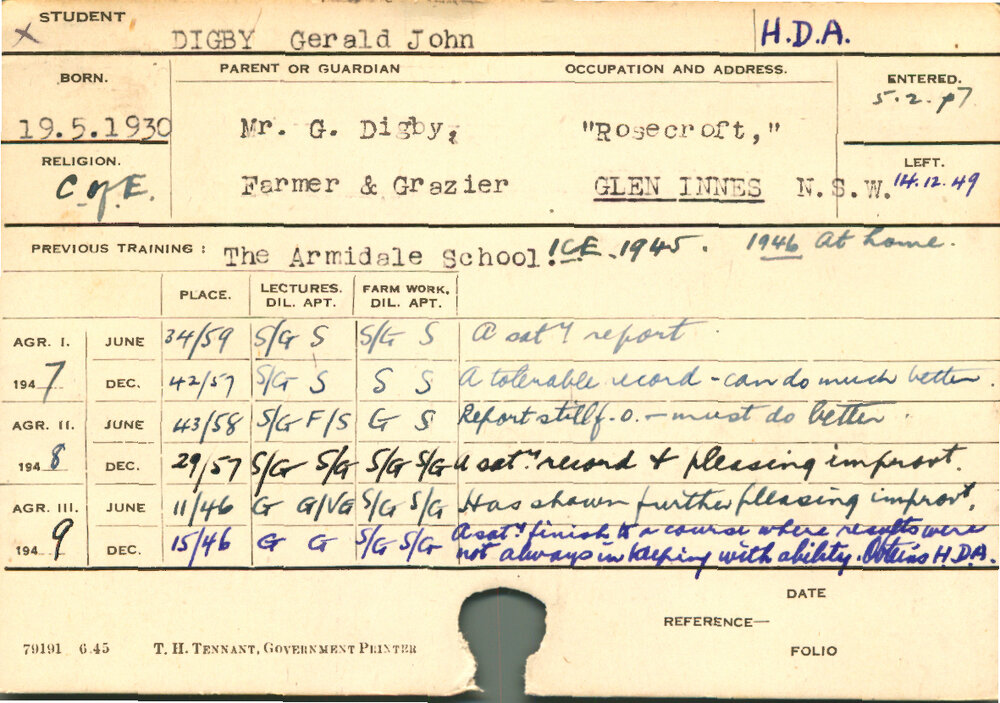 STUDENT
X DIGBY Gerald John H.D.A.
BORN. PARENT OR GUARDIAN OCCUPATION AND ADDRESS. ENTERED.
5.2.47
19.5.1930 Mr. G. Digby, "Rosecroft,"
RELIGION. LEFT.
C of E. Farmer & Grazier GLEN INNES N.S.W. 14.12.49
PREVIOUS TRAINING: The Armidale School. ICE. 1945. 1946 At home.
PLACE. LECTURES. DIL. APT. FARM WORK. DIL. APT.
AGR. I. JUNE 34/59 S/G S S/G S A satY report
1947 DEC. 42/57 S/G S S S A tolerable record - can do much better.
AGR. II. JUNE 43/58 S/G F/S G S Report still f.o. - must do better
1948 DEC. 29/57 S/G S/G S/G S/G A satY record & pleasing improvt.
AGR. III. JUNE 11/46 G G/VG S/G S/G Has shown further pleasing improvt.
1949 DEC. 15/46 G G S/G S/G A satY finish to a course where results were
not always in keeping with ability. Obtains H.D.A.
DATE
REFERENCE—
79191 6.45 T. H. TENNANT, GOVERNMENT PRINTER FOLIO